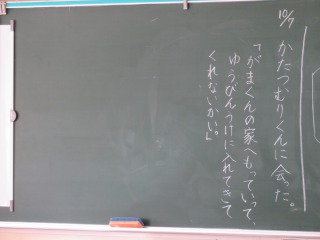 10/7
かたつむりくんに会った。
「がまくんの家へもっていって、
ゆうびんうけに入れてきて
くれないかい。」